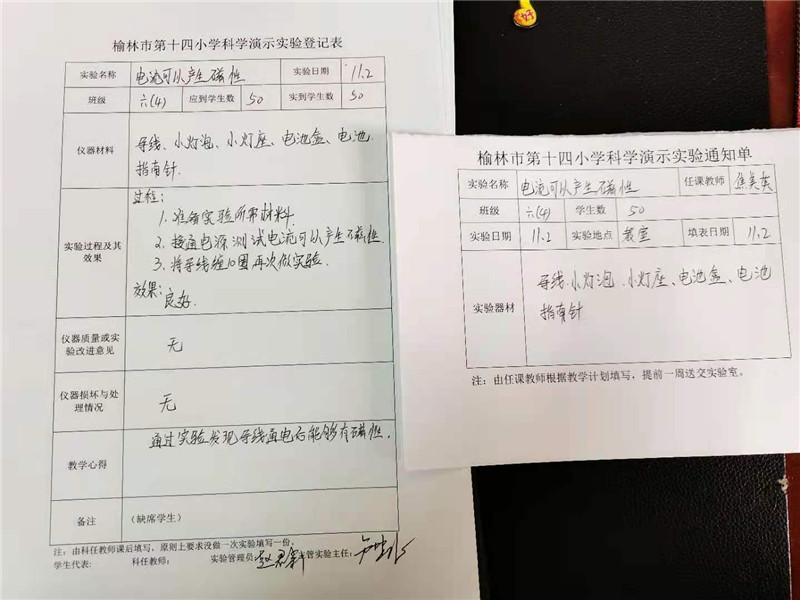 榆林市第十四小学科学演示实验登记表
实验名称 电流可以产生磁性 实验日期 11.2
班级 六(4) 应到学生数 50 实到学生数 50
仪器材料 导线、小灯泡、小灯座、电池盒、电池
指南针.
实验过程及其效果 过程:
1. 准备实验所需材料
2. 接通电源测试电流可以产生磁性
3. 将导线缠10圈再次做实验.
效果:
良好.
仪器质量或实验改进意见 无
仪器损坏与处理情况 无
教学心得 通过实验发现导线通电后能够有磁性.
备注 (缺席学生)
注:由科任教师课后填写,原则上要求没做一次实验填写一份。
学生代表: 科任教师: 实验管理员: 主管实验主任:
榆林市第十四小学科学演示实验通知单
实验名称 电流可以产生磁性 任课教师
班级 六(4) 学生数 50
实验日期 11.2 实验地点 教室 填表日期 11.2
实验器材 导线、小灯泡、小灯座、电池盒、电池
指南针
注:由任课教师根据教学计划填写,提前一周送交实验室。